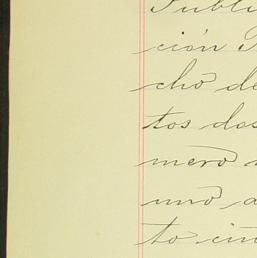 Publi
ción
cho de
tos dos
mero
uno a
to cin